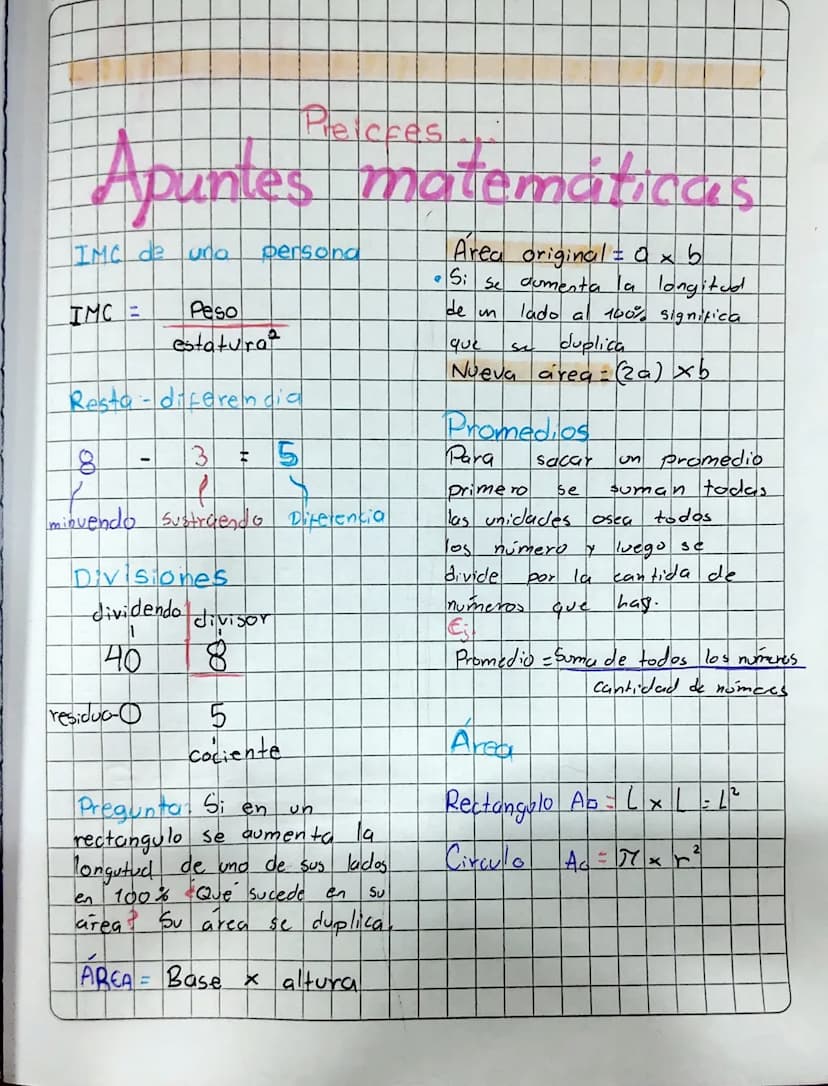 Preicfes...
Apuntes matemáticas
IMC de una persona
IMC = Peso
estatura²
Resta - diferencia
8 - 3 = 5
minuendo sustraendo Diferencia
Divisiones
dividendo divisor
40 8
residuo-0 5
cociente
Pregunta: Si en un
rectangulo se aumenta la
longutud de uno de sus lados
en 100% ¿Qué sucede en su
área? Su área se duplica.
ÁREA = Base x altura
Área original = a x b
• Si se aumenta la longitud
de un lado al 100% significa
que se duplica
Nueva área = (2a) x b
Promedios
Para sacar un promedio
primero se suman todas
las unidades osea todos
los número y luego se
divide por la cantida de
numeros que hay.
Ej:
Promedio = Suma de todos los números
cantidad de números
Área
Rectangulo A▭ = L x L = L²
Circulo A○ = π x r²